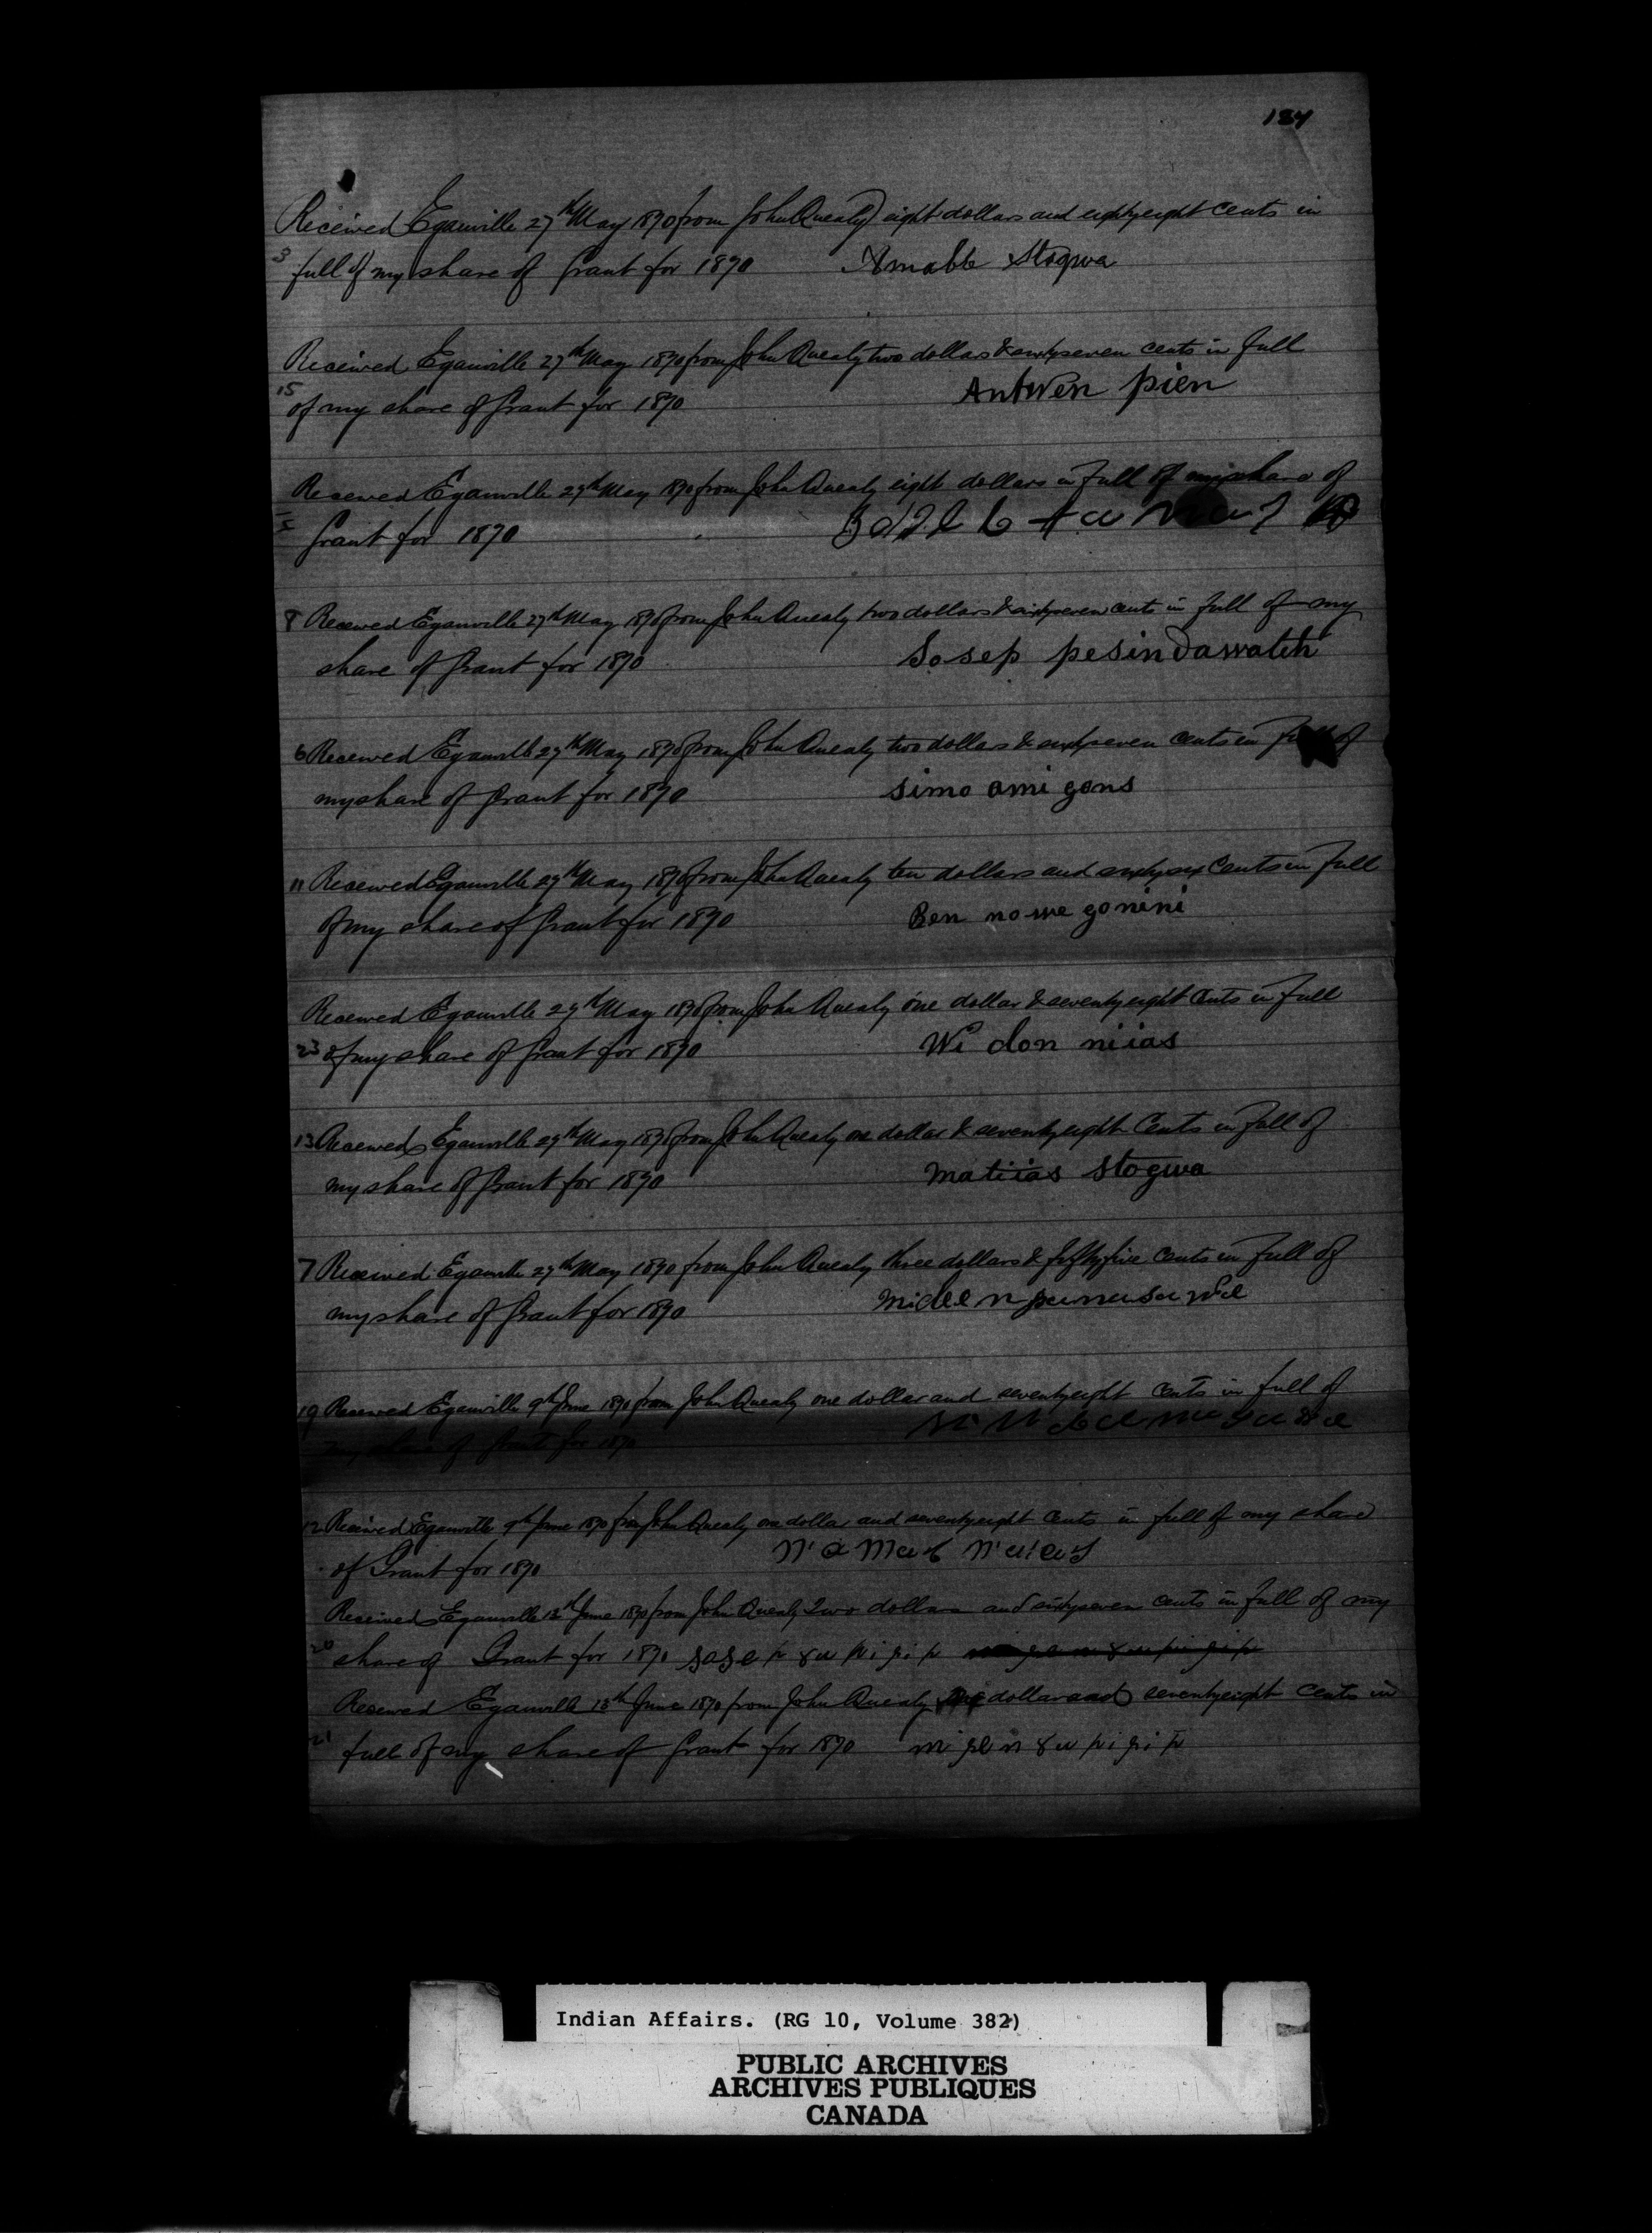 184
Received Eganville 27th May 1870 from John Quealy eight dollars and eightyeight cents in
3 full of my share of Grant for 1870 Amable Stogwa
Received Eganville 27th May 1870 from John Quealy two dollars & sixtyseven cents in full
15 of my share of Grant for 1870 Antwen pien
Received Eganville 27th May 1870 from John Quealy eight dollars in full of my share of
Grant for 1870
8 Received Eganville 27th May 1870 from John Quealy two dollars & sixtyseven cents in full of my
share of Grant for 1870 Sosep pesindawatch
6 Received Eganville 27th May 1870 from John Quealy two dollars & sixtyseven cents in full of
my share of Grant for 1870 simo ami gons
11 Received Eganville 27th May 1870 from John Quealy ten dollars and sixtysix Cents in full
of my share of Grant for 1870 Ben no we gonini
Received Eganville 27th May 1870 from John Quealy one dollar & seventyeight Cents in full
23 of my share of Grant for 1870 Wi don niias
13 Received Eganville 27th May 1870 from John Quealy one dollar & seventyeight Cents in full of
my share of Grant for 1870 Matiias Stogwa
7 Received Eganville 27th May 1870 from John Quealy three dollars & fiftyfive Cents in full of
my share of Grant for 1870
19 Received Eganville 9th June 1870 from John Quealy one dollar and seventyeight cents in full of
my share of Grant for 1870
12 Received Eganville 9th June 1870 from John Quealy one dollar and seventyeight cents in full of my share
of Grant for 1870
Received Eganville 13th June 1870 from John Quealy Two dollars and sixtyseven cents in full of my
20 share of Grant for 1870 sose p 8u pi ji p
Received Eganville 13th June 1870 from John Quealy dollar and seventyeight cents in
21 full of my share of Grant for 1870 mi jel n 8u pi ji p
Indian Affairs. (RG 10, Volume 382)
PUBLIC ARCHIVES
ARCHIVES PUBLIQUES
CANADA